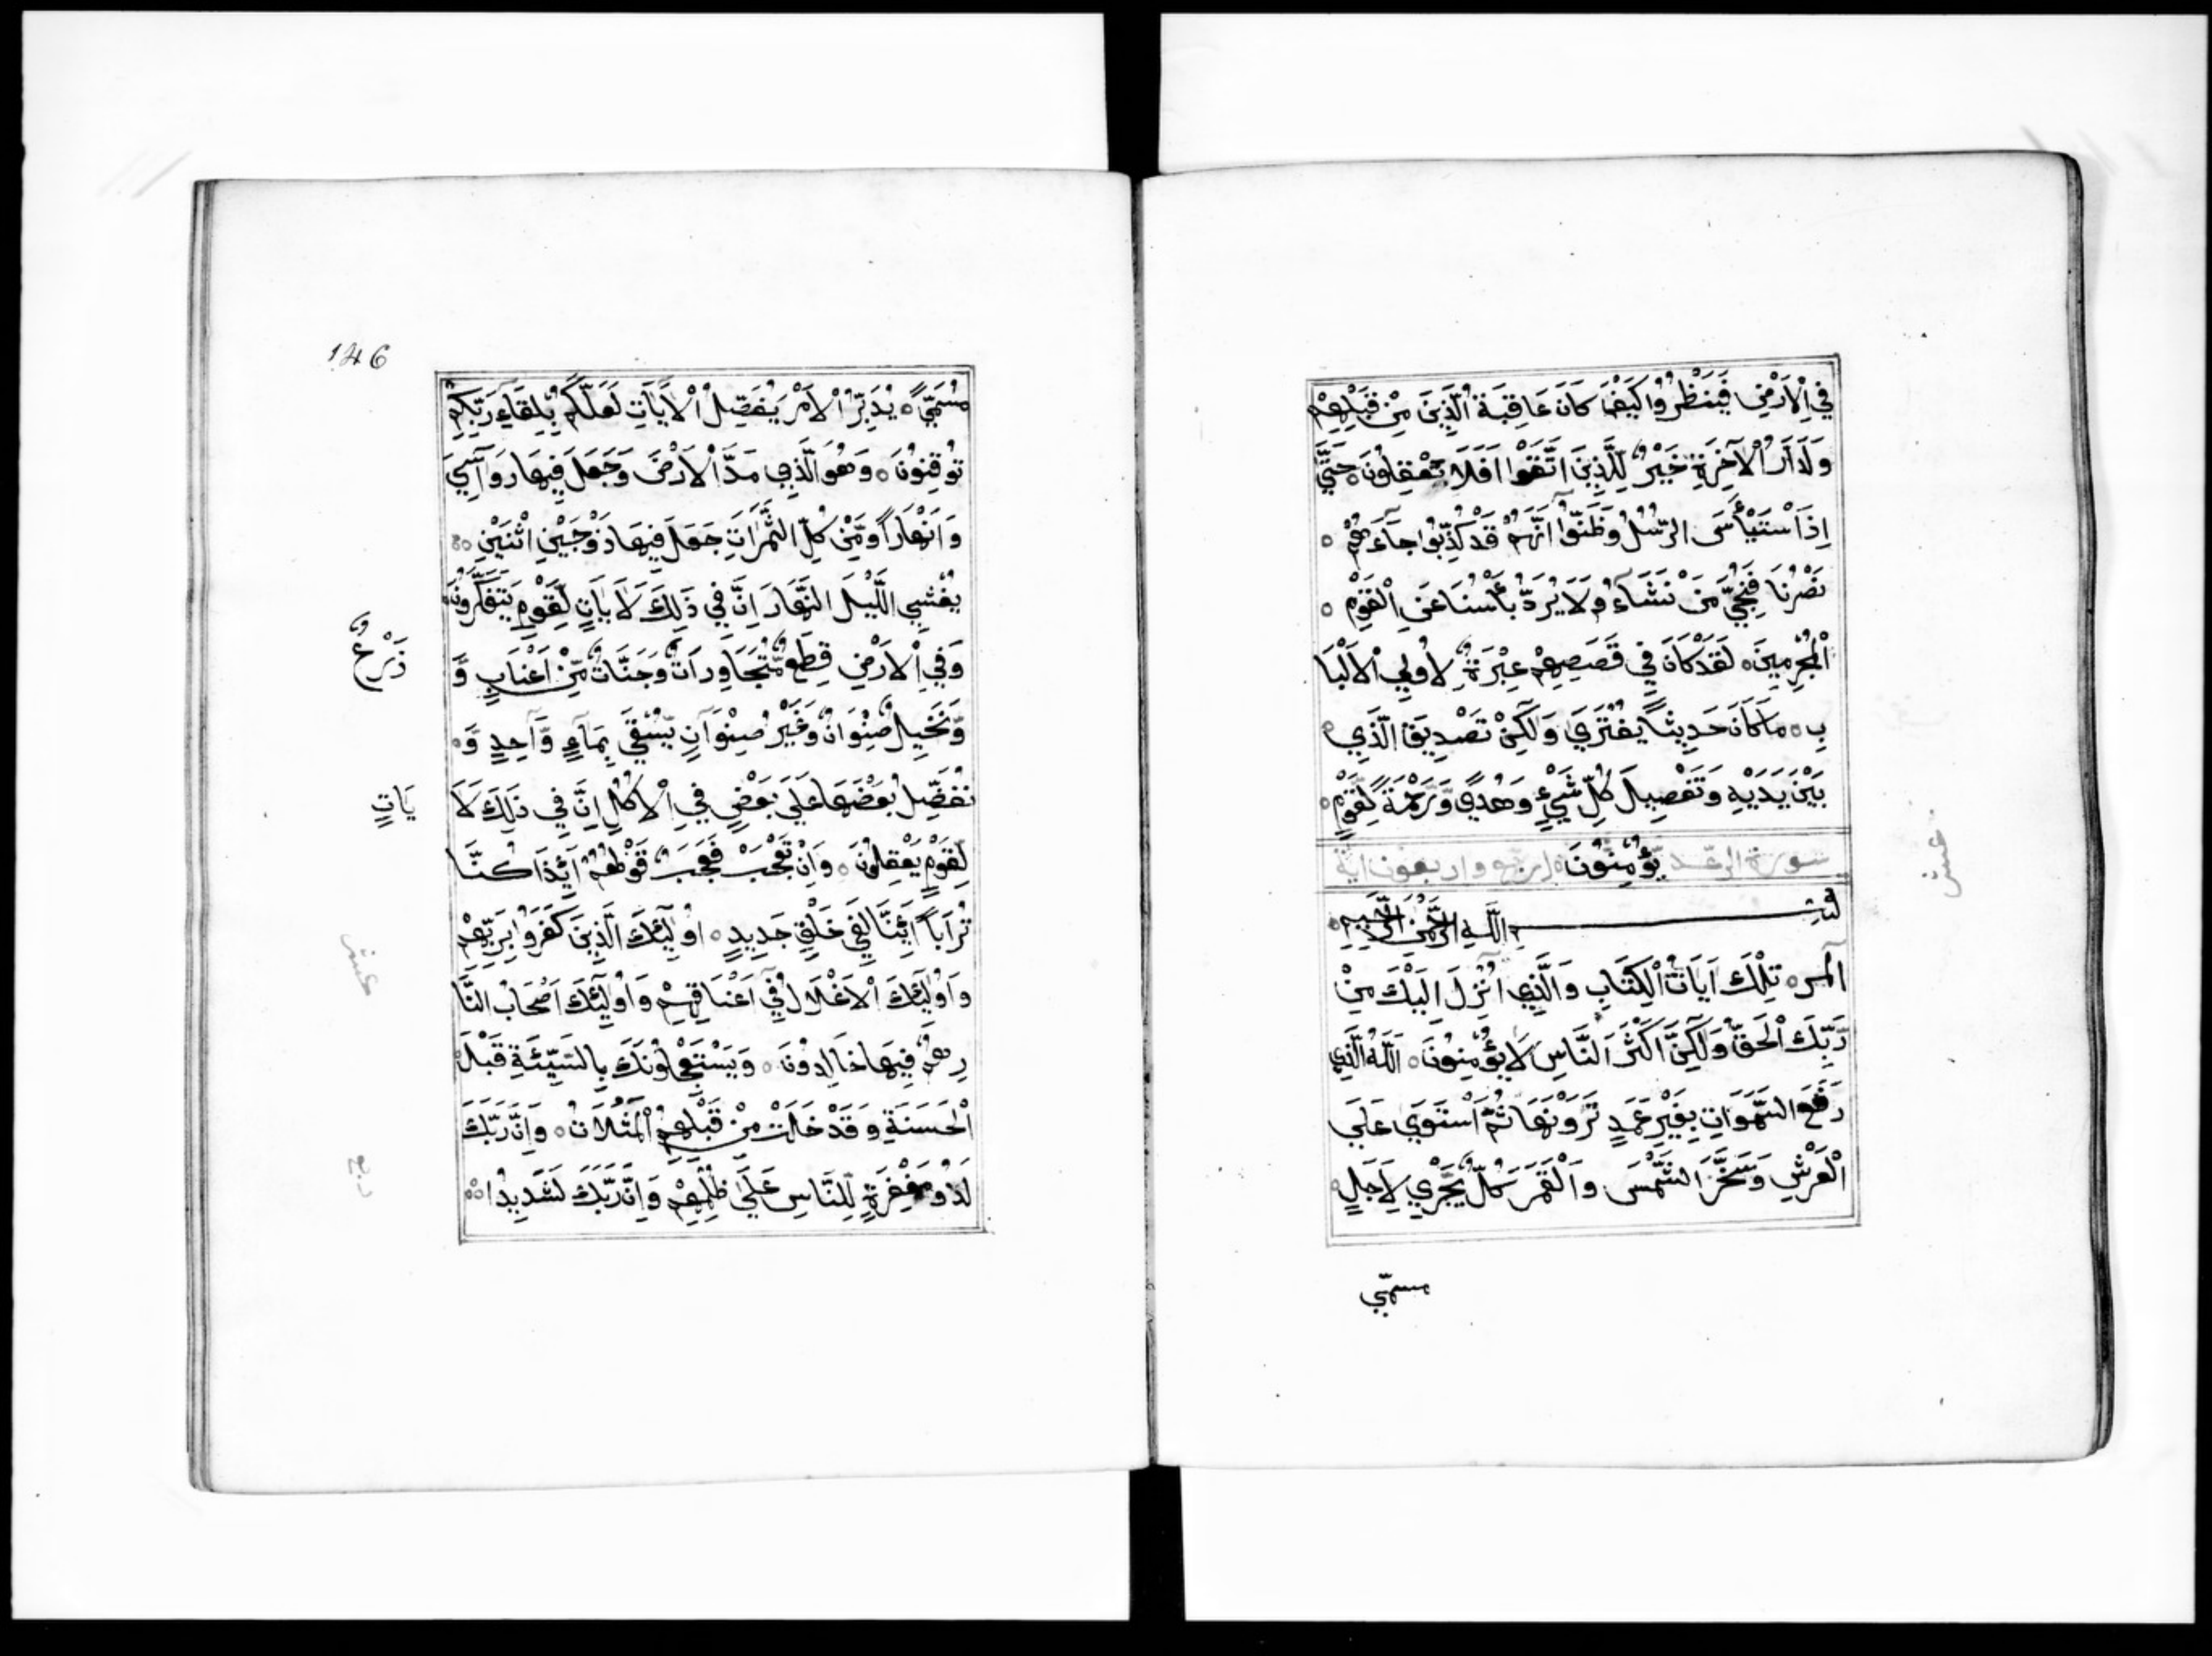 في الارض فينظروا كيف كان عاقبة الذين من قبلهم
ولدار الآخرة خير للذين اتقوا افلا تعقلون حتي
اذا ستيأس الرسل وظنوا انهم قد كذبوا جآءهم
نصرنا فنجي من نشآء ولا يرد بأسنا عن القوم
المجرمين لقد كان في قصصهم عبرة لاولي الالبا
ب ما كان حديثا يفتري ولكن تصديق الذي
بين يديه وتفصيل كل شيء وهدي ورحمة لقوم
سورة الرعد يؤمنون اربع واربعون اية
بسم الله الرحمن الرحيم
المر تلك ايات الكتاب والذي انزل اليك من
ربك الحق ولكن اكثر الناس لا يؤمنون الله الذي
رفع السموات بغير عمد ترونها ثم استوي علي
العرش وسخر الشمس والقمر كل يجري لاجل
مسمي
عشر
146
مسمي يدبر الامر يفصل الايات لعلكم بلقاء ربكم
توقنون وهو الذي مد الارض وجعل فيها رواسي
وانهارا ومن كل الثمرات جعل فيها زوجين اثنين
يغشي الليل النهار ان في ذلك لايات لقوم يتفكرون
وفي الارض قطع متجاورات وجنات من اعناب و
زرع
ونخيل صنوان وغير صنوان يسقي بمآء واحد و
نفضل بعضها علي بعض في الاكل ان في ذلك لا
يات
لقوم يعقلون وان تعجب فعجب قولهم ائذا كنا
ترابا ائنا لفي خلق جديد اولئك الذين كفروا بربهم
واولئك الاغلال في اعناقهم واولئك اصحاب النا
عشر
رهم فيها خالدون ويستعجلونك بالسيئة قبل
الحسنة وقد خلت من قبلهم المثلات وان ربك
ربع
لذو مغفرة للناس علي ظلمهم وان ربك لشديد ا